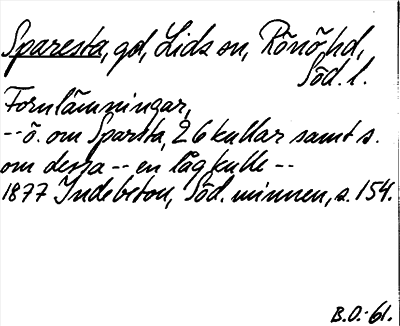 Sparesta, gd, Lids sn, Rönö hd,
Söd. l.
Fornlämningar,
-- ö. om Sparsta, 26 kullar samt s.
om dessa -- en låg kulle --
1877 Indebetou, Söd. minnen, s. 154.
B.O.-61.